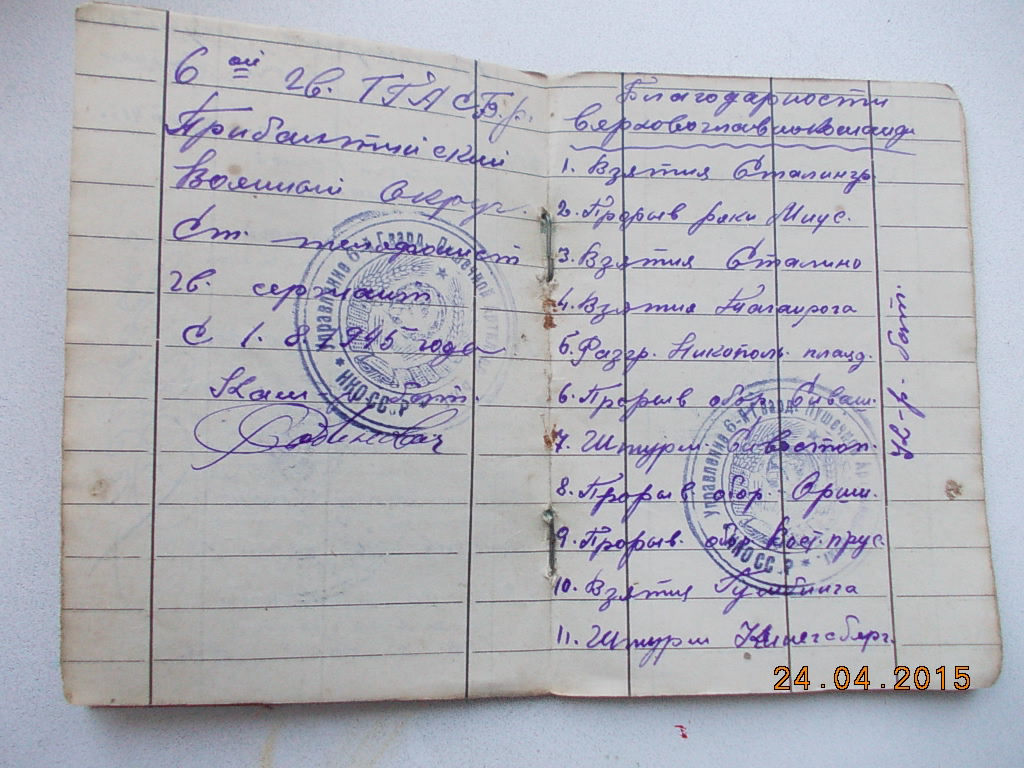 6 ой гв. ТПА с Бр.
Прибалтийский
Военный округ.
Ст. телефонист
гв. сержант
С 1. 8. 1945 года
Ком
Управление 6-й Гвард. Пушечной
НКО СССР
Благодарности
верховноглавнокоманд
1. Взятия Сталингр
2. Прорыв реки Миус.
3. Взятия Сталино
4. Взятия Таганрога
5. Разгр. Никополь. плацд.
6. Прорыв обор. Сиваш.
7. Штурм Сивостоп.
8. Прорыв обор. Орши.
9. Прорыв. обор Вост. прус.
10. Взятия Гумбинга
11. Штурм Кенигсберг.
Управление 6-й Гвард. Пушечной
НКО СССР
24.04.2015